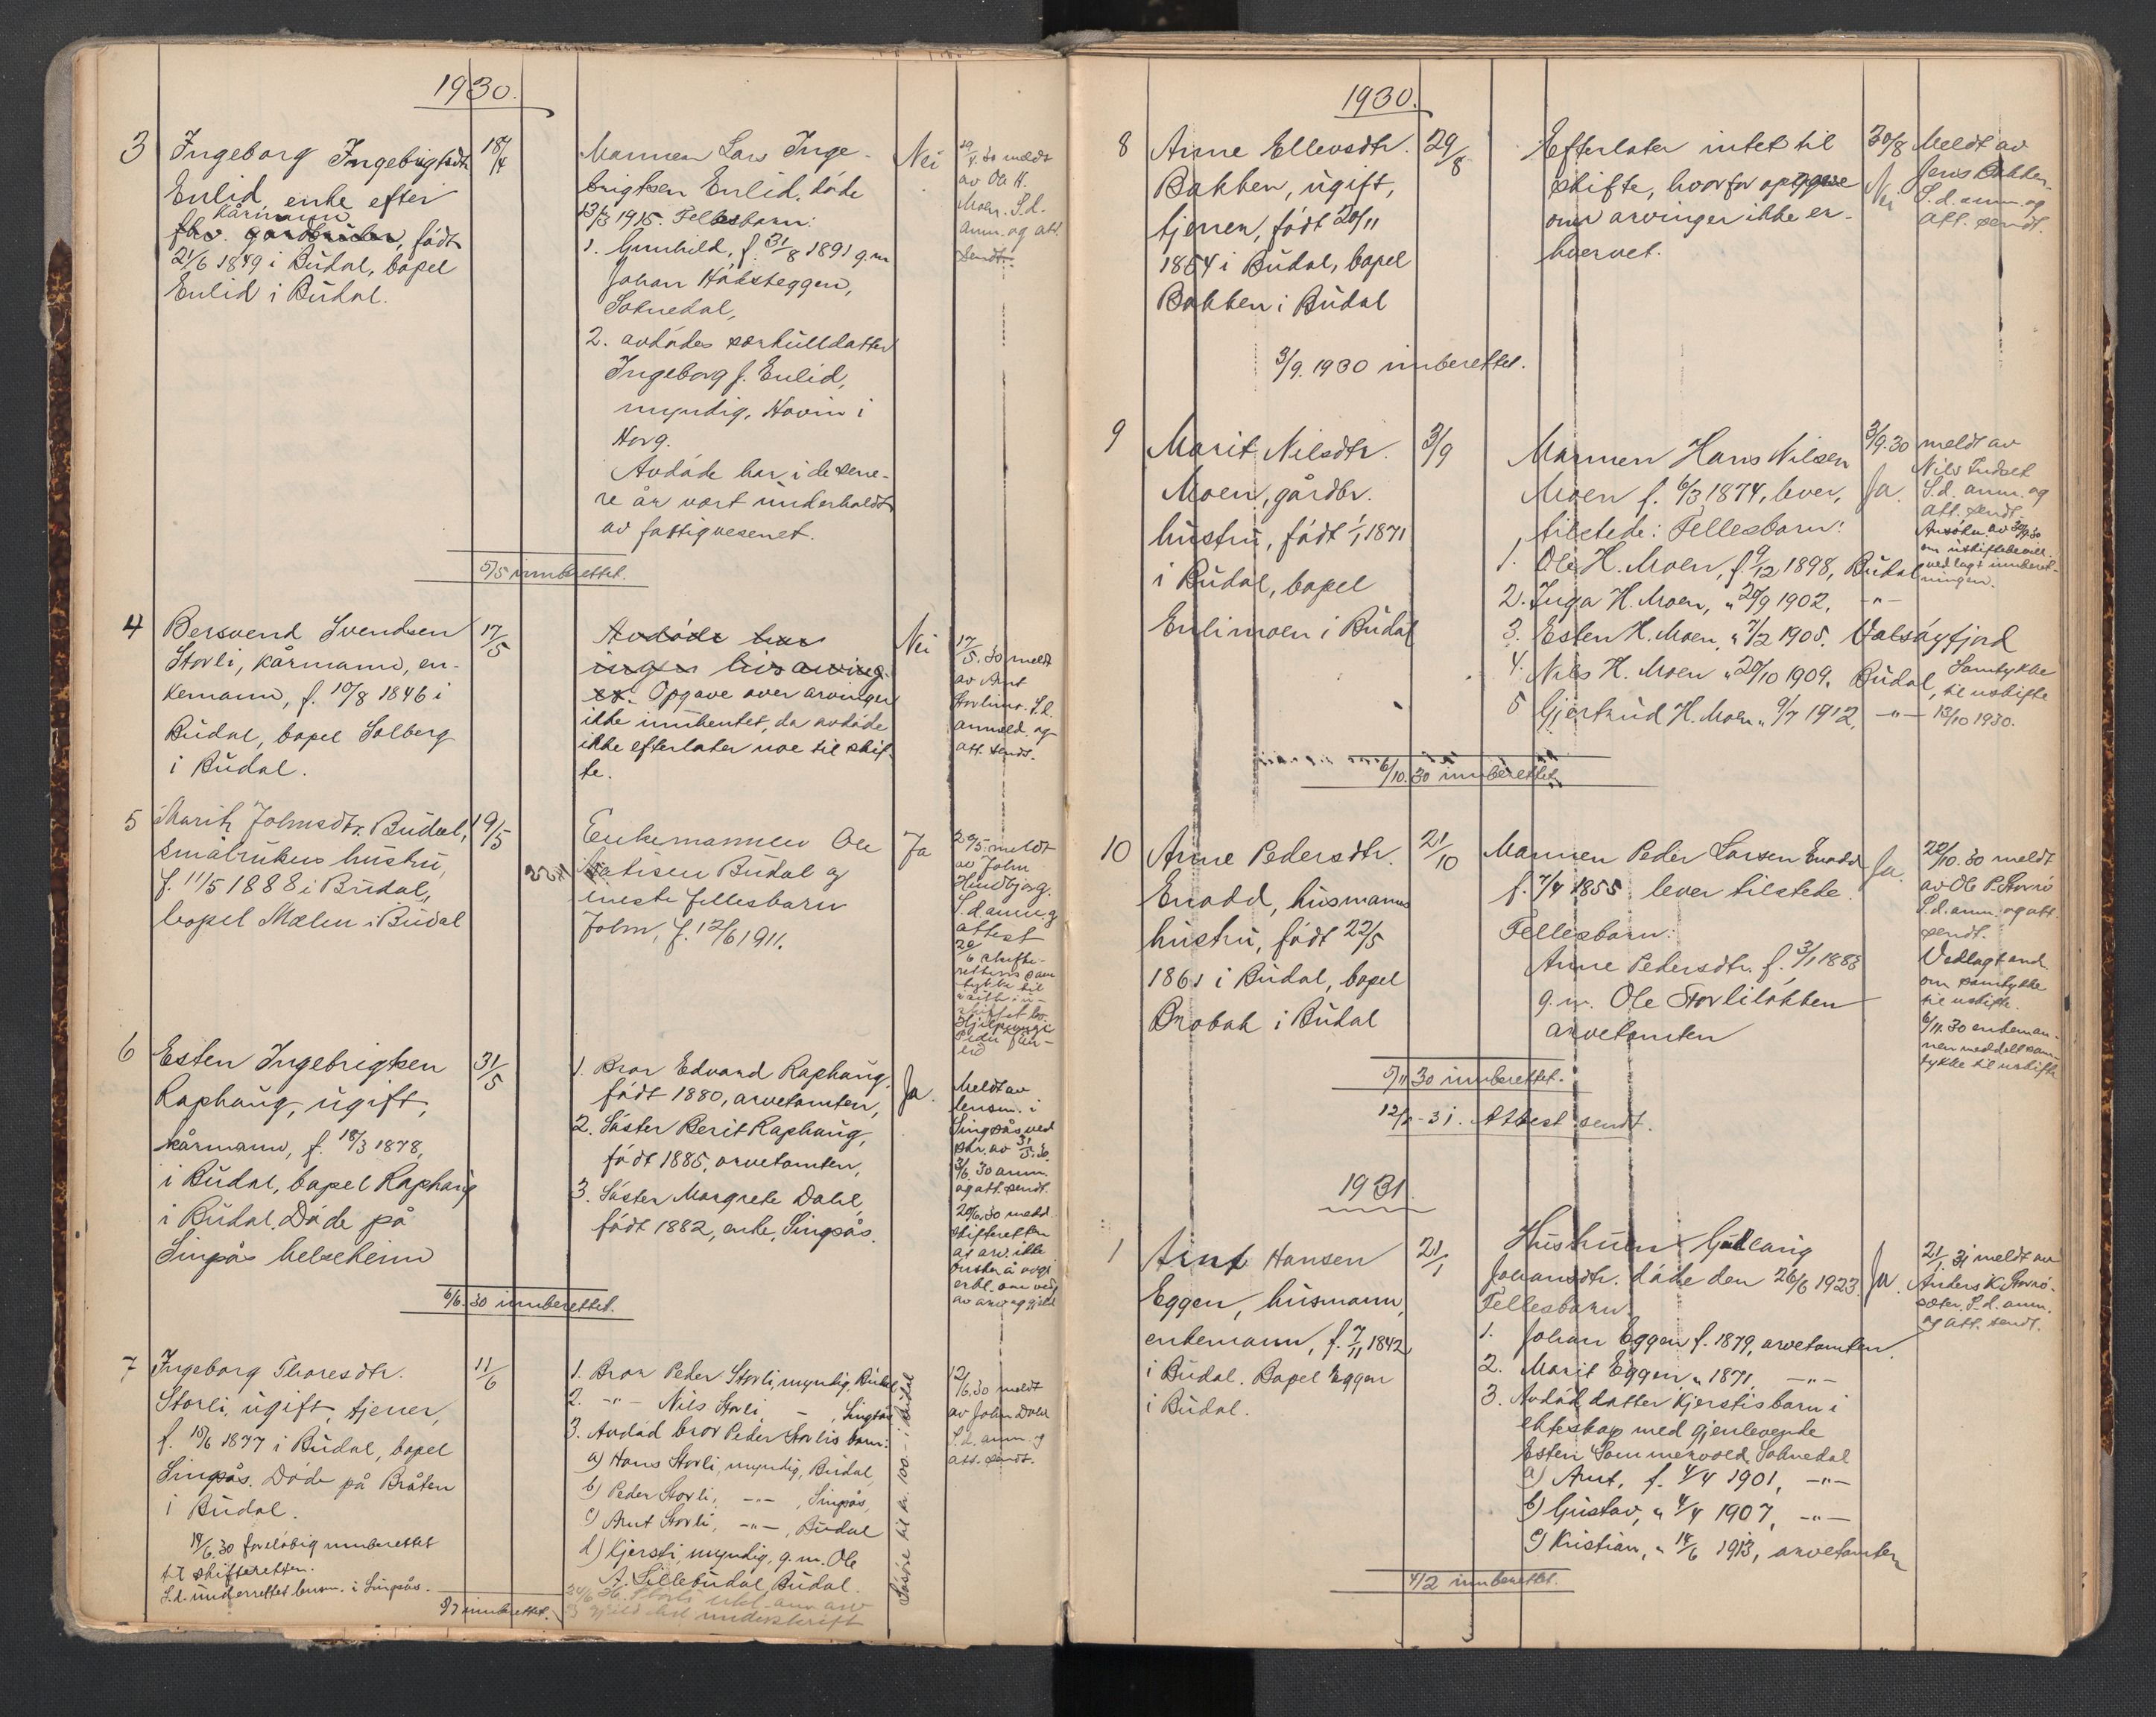 1930.
3 Ingeborg Ingebrigtsdtr. 18/4
Enlid, enke efter
kårmann
fhv. gardbruker, født
21/6 1849 i Budal, bopel
Enlid i Budal.
Mannen Lars Inge-
brigtsen Enlid, døde
13/3 1915. Fellesbarn:
1. Gunhild, f. 31/8 1891 g.m.
Johan
Soknedal,
2. avdødes særkulldatter
Ingeborg f. Enlid,
myndig, Hovin i
Horg.
Avdøde har i de sene-
re år vært underholdt
av fattigvesenet.
Nei
29/4.30 meldt
av Ole H.
Moen. S.d.
anm. og att.
sendt.
5/5 innberettet.
4 Bersvend Svendsen 17/5
Storli, kårmann, en-
kemann, f. 10/8 1846 i
Budal, bopel Solberg
i Budal.
Avdøde har
ingen livsarving-
er. Opgave over arvinger
ikke innhentet, da avdøde
ikke efterlater noe til skif-
te.
Nei
17/5.30 meldt
av Arnt
Storlimo. S.d.
anmeld. og
att. sendt.
5 Marit Johnsdtr. Budal, 19/5
småbrukers hustru,
f. 11/5 1888 i Budal,
bopel Mælen i Budal
Enkemannen Ole
Budal og
eneste fellesbarn
John, f. 12/6 1911.
Ja
20/5 meldt
av John
Hindbjørg.
S.d. anm. og
attest
20/6 skifte-
rettens sam
tykke til
6 Esten Ingebrigtsen 31/5
Raphaug, ugift,
kårmann, f. 18/3 1878,
i Budal, bopel Raphaug
i Budal. Døde på
Singsås helseheim
1. Bror Edvard Raphaug,
født 1880, arvetomten,
2. Søster Berit Raphaug,
født 1885, arvetomten,
3. Søster Margrete Dahl,
født 1882, enke, Singsås.
Ja.
Meldt av
lensm. i
Singsås ved
skr. av 31/5.30.
3/6.30 anm.
og att. sendt.
20/6.30 medd.
skifteretten
at arv. ikke
ønsker å avgi
erkl. om vedg.
av arv og gjeld
6/6.30 innberettet.
7 Ingeborg Thoresdtr. 11/6
Storli, ugift, tjener,
f. 18/6 1877 i Budal, bopel
Singsås. Døde på Bråten
i Budal.
14/6.30 foreløbig innberettet
til skifteretten.
S.d. underrettet lensm. i Singsås.
1. Bror Peder Storli, myndig, Budal
2. -"- Nils Storli, - , Singsås
3. Avdød bror Peder Storlis barn:
a) Hans Storli, myndig, Budal,
b) Peder Storli, -"-, Singsås,
c) Arnt Storli, -"-, Budal
d) Kjersti, myndig, g.m. Ole
A. Lillebudal, Budal.
Løsøre til kr. 100.- i Budal
12/6.30 meldt
av John Dahl
S.d. anm. og
att. sendt.
9/7 innberettet.
1930.
8 Anne Ellevsdtr. 29/8
Bakken, ugift,
tjener, født 20/11
1854 i Budal, bopel
Bakken i Budal
Efterlater intet til
skifte, hvorfor opgave
over arvinger ikke er-
hvervet.
30/8 Nei
Meldt av
Jens Bakken
S.d. anm. og
att. sendt.
3/9. 1930 innberettet.
9 Marit Nilsdtr. 3/9
Moen, gårdbr.
hustru, født 1/1 1871
i Budal, bopel
Enlimoen i Budal
Mannen Hans Nilsen
Moen f. 6/3 1874, lever,
tilstede: Fellesbarn:
1. Ole H. Moen, f. 9/12 1898, Budal
2. Inga H. Moen, " 20/9 1902, -"-
3. Esten H. Moen, " 7/2 1905. Valsøyfjord
4. Nils H. Moen " 20/10 1909, Budal,
5 Gjertrud H. Moen " 9/7 1912, -"-
3/9.30 Ja.
meldt av
Nils Indset
S.d. anm. og
att. sendt.
Ansøkn. av 30/9.30
om uskiftebevill.
vedlagt innberet-
ningen.
Samtykke
til uskifte
13/10 1930.
6/10.30 innberettet.
10 Anne Pedersdtr. 21/10
Enodd, husmanns
hustru, født 22/5
1861 i Budal, bopel
Brobak i Budal
Mannen Peder Larsen Enodd
f. 7/4 1855 lever tilstede.
Fellesbarn:
Anne Pedersdtr. f. 3/1 1888
g.m. Ole Storliløkken
arvetomten
Ja.
22/10.30 meldt
av Ole P. Storrø
S.d. anm. og att.
sendt.
Vedlagt and.
om samtykke
til uskifte.
6/11.30 enkeman-
nen meddelt sam-
tykke til uskifte
5/11 30 innberettet.
12/2-31. Attest sendt.
1931.
1 Arnt Hansen 21/1
Eggen, husmann,
enkemann, f. 7/11 1842
i Budal. Bopel Eggen
i Budal.
Hustruen Gullaug
Johansdtr. døde den 26/6 1923.
Fellesbarn
1. Johan Eggen f. 1879, arvetomten.
2. Marit Eggen " 1871, -"-
3. Avdød datter Kjerstis barn i
ekteskap med gjenlevende
Esten Sommervold, Soknedal
a) Arnt, f. 4/4 1901, -"-
b) Gustav, " 4/4 1907, -"-
c) Kristian, " 14/6 1913, arvetomten
Ja.
21/1 31 meldt av
Anders K. Storrø-
sæter. S.d. anm.
og att. sendt.
4/2 innberettet.